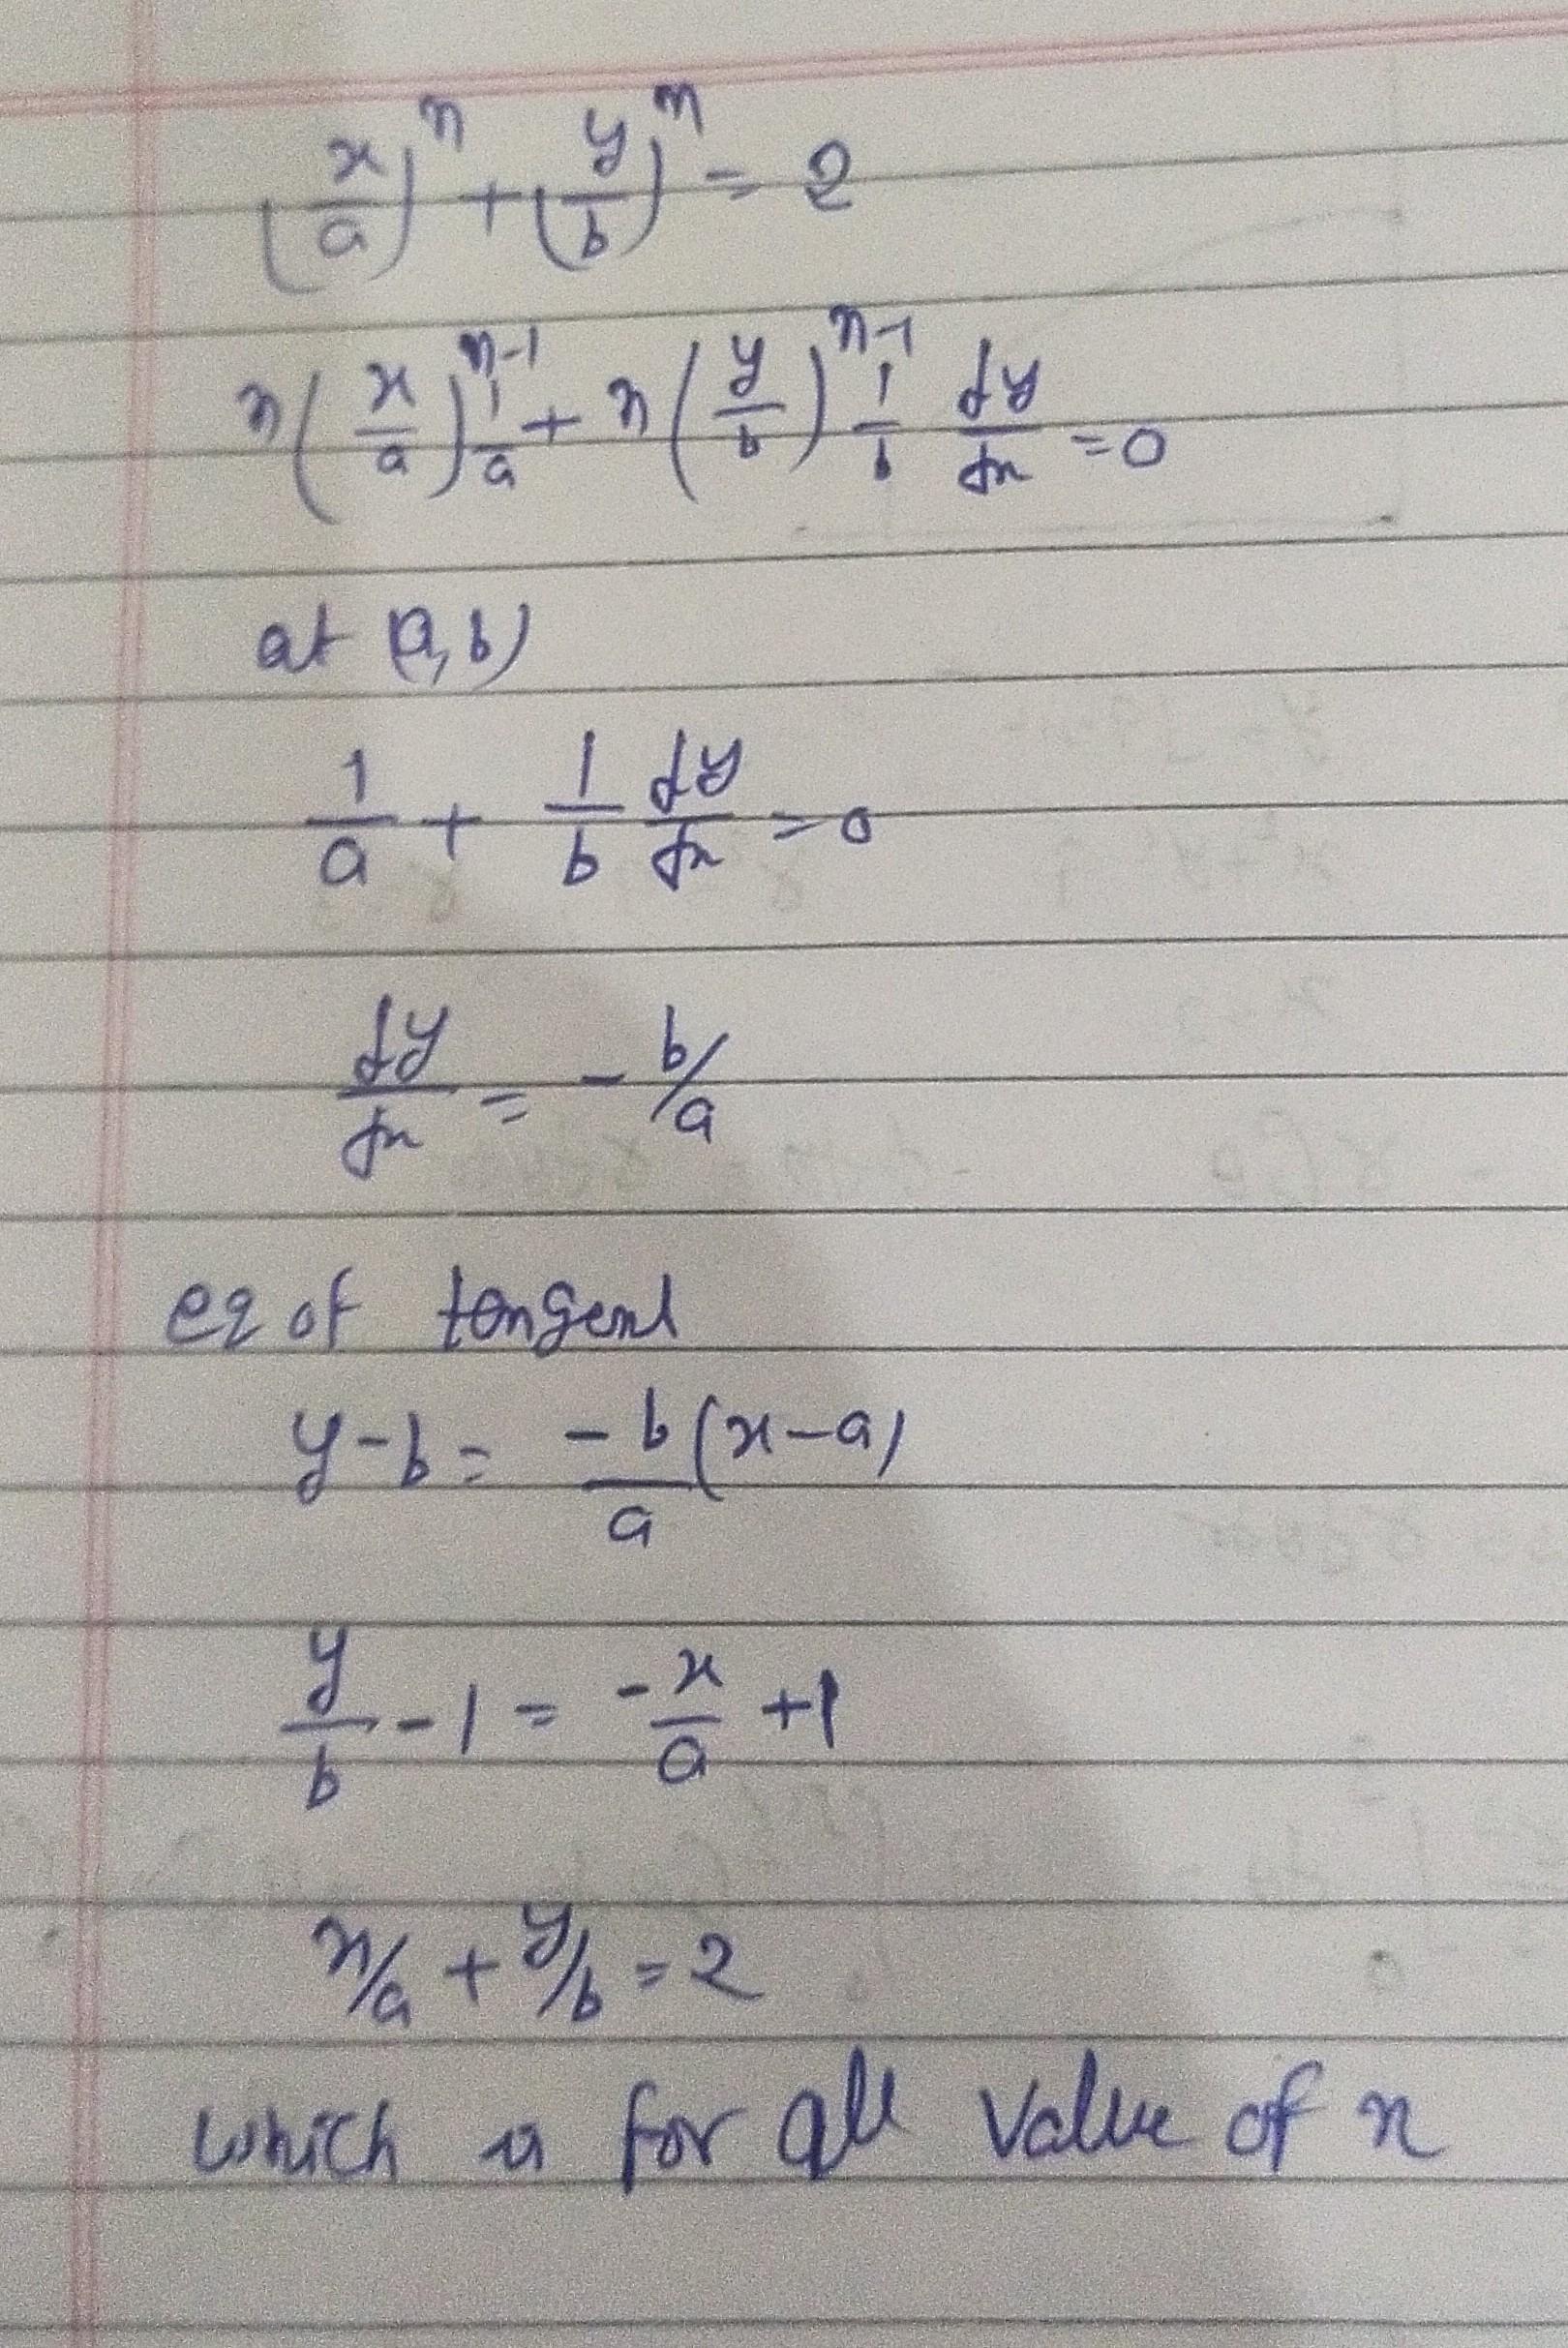 (x/a)^n + (y/b)^n = 2
n(x/a)^n-1 1/a + n(y/b)^n-1 1/b dy/dx = 0
at (a,b)
1/a + 1/b dy/dx = 0
dy/dx = - b/a
eq of tangent
y-b = -b/a (x-a)
y/b - 1 = -x/a + 1
x/a + y/b = 2
which is for all value of n